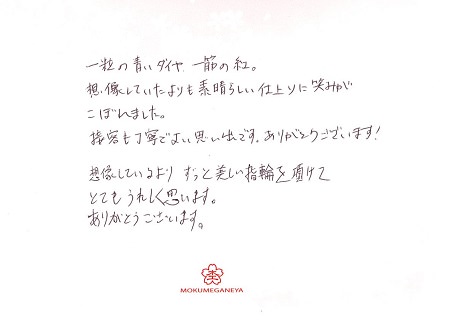 一粒の青いダイヤ 一筋の紅。
想像していたよりも素晴らしい仕上りに笑みが
こぼれました。
接客も丁寧でよい思い出です。ありがとうございます!
想像しているより ずっと美しい指輪を頂けて
とてもうれしく思います。
ありがとうございます。
MOKUMEGANEYA